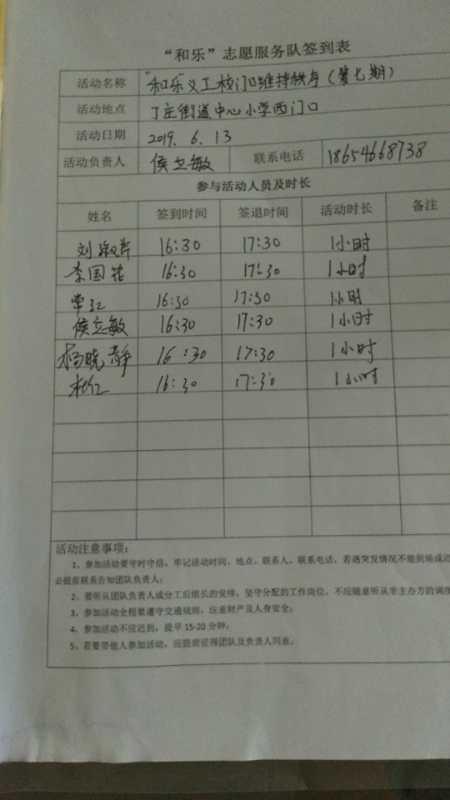 “和乐”志愿服务队签到表
活动名称 “和乐义工校门口维持秩序(第七期)
活动地点 丁庄街道中心小学西门口
活动日期 2019. 6. 13
活动负责人 侯立敏 联系电话 18654668738
参与活动人员及时长
姓名 签到时间 签退时间 活动时长 备注
刘 16:30 17:30 1小时
李国 16:30 17:30 1小时
16:30 17:30 1小时
侯立敏 16:30 17:30 1小时
杨晓静 16:30 17:30 1小时
杜仁 16:30 17:30 1小时
活动注意事项:
1、参加活动要守时守信,牢记活动时间、地点、联系人、联系电话,若遇突发情况不能到场或迟
必提前联系告知团队负责人;
2、要听从团队负责人或分工后组长的安排,坚守分配的工作岗位,不应随意听从非主办方的调度
3、参加活动全程要遵守交通规则,注意财产及人身安全;
4、参加活动不应迟到,提早 15-20 分钟。
5、若要带他人参加活动,应提前征得团队及负责人同意。